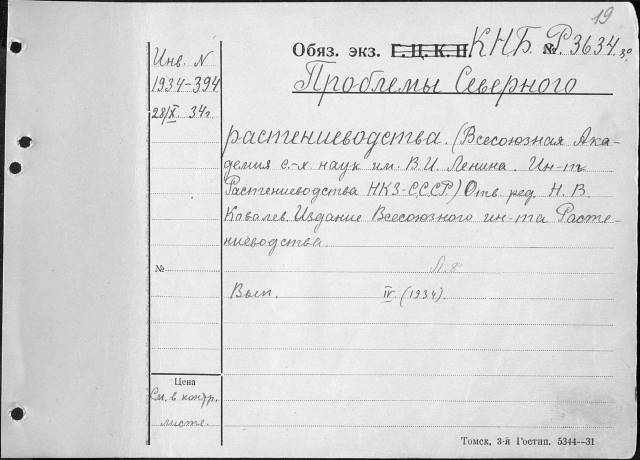 19
Инв. N
1934-394
28/X. 34г.
Обяз. экз. Г.Ц.К.П. КНБ. №. Р.3634.
Проблемы Северного
растениеводства. (Всесоюзная Ака-
демия с.-х. наук им. В.И. Ленина. Ин-т
Растениеводства НКЗ-СССР) Отв. ред. Н. В.
Ковалев. Издание Всесоюзного ин-та Расте-
ниеводства.
№
Вып. IV. (1934).
Цена
См. в контр.
листе.
Томск, 3-й Гостип. 5344—31